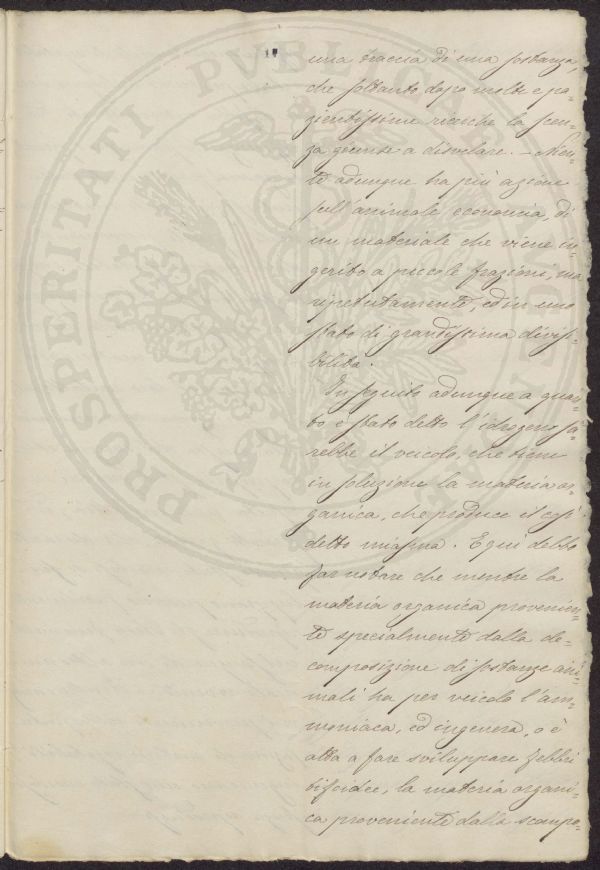 una traccia di una sostanza,
che soltanto dopo molte e pa-
zientissime ricerche la scen-
za giunse a disvelare. – Nien-
te adunque ha più azione
sull'animale economia, di
un materiale che viene in-
gerito a piccole frazioni, ma
ripetutamente, ed in uno
stato di grandissima divisi-
bilità.
In seguito adunque a quan-
to è stato detto l'idrogeno sa-
rebbe il veicolo, che tiene
in soluzione la materia or-
ganica, che produce il così
detto miasma. E qui debbo
far notare che mentre la
materia organica provenien-
te specialmente dalla de-
composizione di sostanze ani-
mali ha per veicolo l'am-
moniaca, ed ingenera, o è
atta a fare sviluppare febbri
tifoidee, la materia organi-
ca proveniente dalla scompo-
PROSPERITATI PVBLICAE